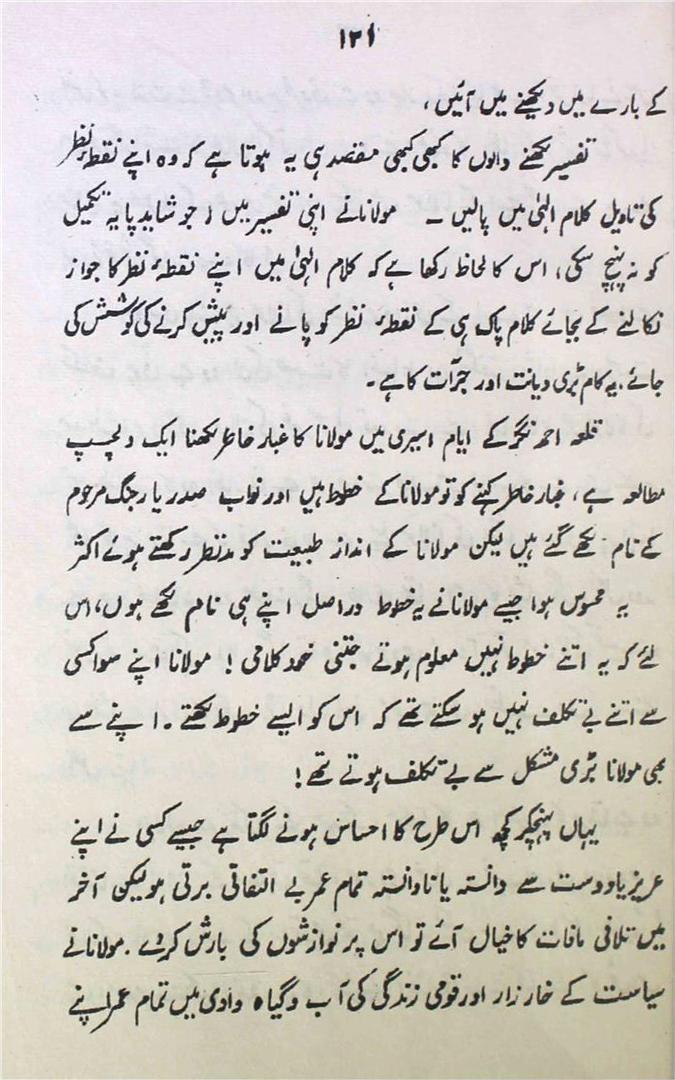 ۱۲۱
کے بارے میں دیکھنے میں آئیں ،
تفسیر لکھنے والوں کا کبھی کبھی مقصد ہی یہ ہوتا ہے کہ وہ اپنے نقطۂ نظر
کی تاویل کلام الٰہی میں پالیں ۔ مولانا نے اپنی تفسیر میں ( جو شاید پایہ تکمیل
کو نہ پہنچ سکی ، اس کا لحاظ رکھا ہے کہ کلام الٰہی میں اپنے نقطۂ نظر کا جواز
نکالنے کے بجائے کلام پاک ہی کے نقطۂ نظر کو پانے اور پیش کرنے کی کوشش کی
جائے ، یہ کام بڑی دیانت اور جرأت کا ہے ۔
قلعہ احمد نگر کے ایام اسیری میں مولانا کا غبار خاطر لکھنا ایک دلچسپ
مطالعہ ہے ، غبار خاطر کہنے کو تو مولانا کے خطوط ہیں اور نواب صدر یار جنگ مرحوم
کے نام لکھے گئے ہیں لیکن مولانا کے انداز طبیعت کو مدنظر رکھتے ہوئے اکثر
یہ محسوس ہوا جیسے مولانا نے یہ خطوط دراصل اپنے ہی نام لکھے ہوں ، اس
لئے کہ یہ اتنے خطوط نہیں معلوم ہوتے جتنی خود کلامی ! مولانا اپنے سوا کسی
سے اتنے بے تکلف نہیں ہو سکتے تھے کہ اس کو ایسے خطوط لکھتے ۔ اپنے سے
بھی مولانا بڑی مشکل سے بے تکلف ہوتے تھے !
یہاں پہنچکر کچھ اس طرح کا احساس ہونے لگتا ہے جیسے کسی نے اپنے
عزیز یا دوست سے دانستہ یا نادانستہ تمام عمر بے التفاتی برتی ہو لیکن آخر
میں تلافی مافات کا خیال آئے تو اس پر نوازشوں کی بارش کردے . مولانا نے
سیاست کے خارزار اور قومی زندگی کی آب و گیاہ وادی میں تمام عمر اپنے